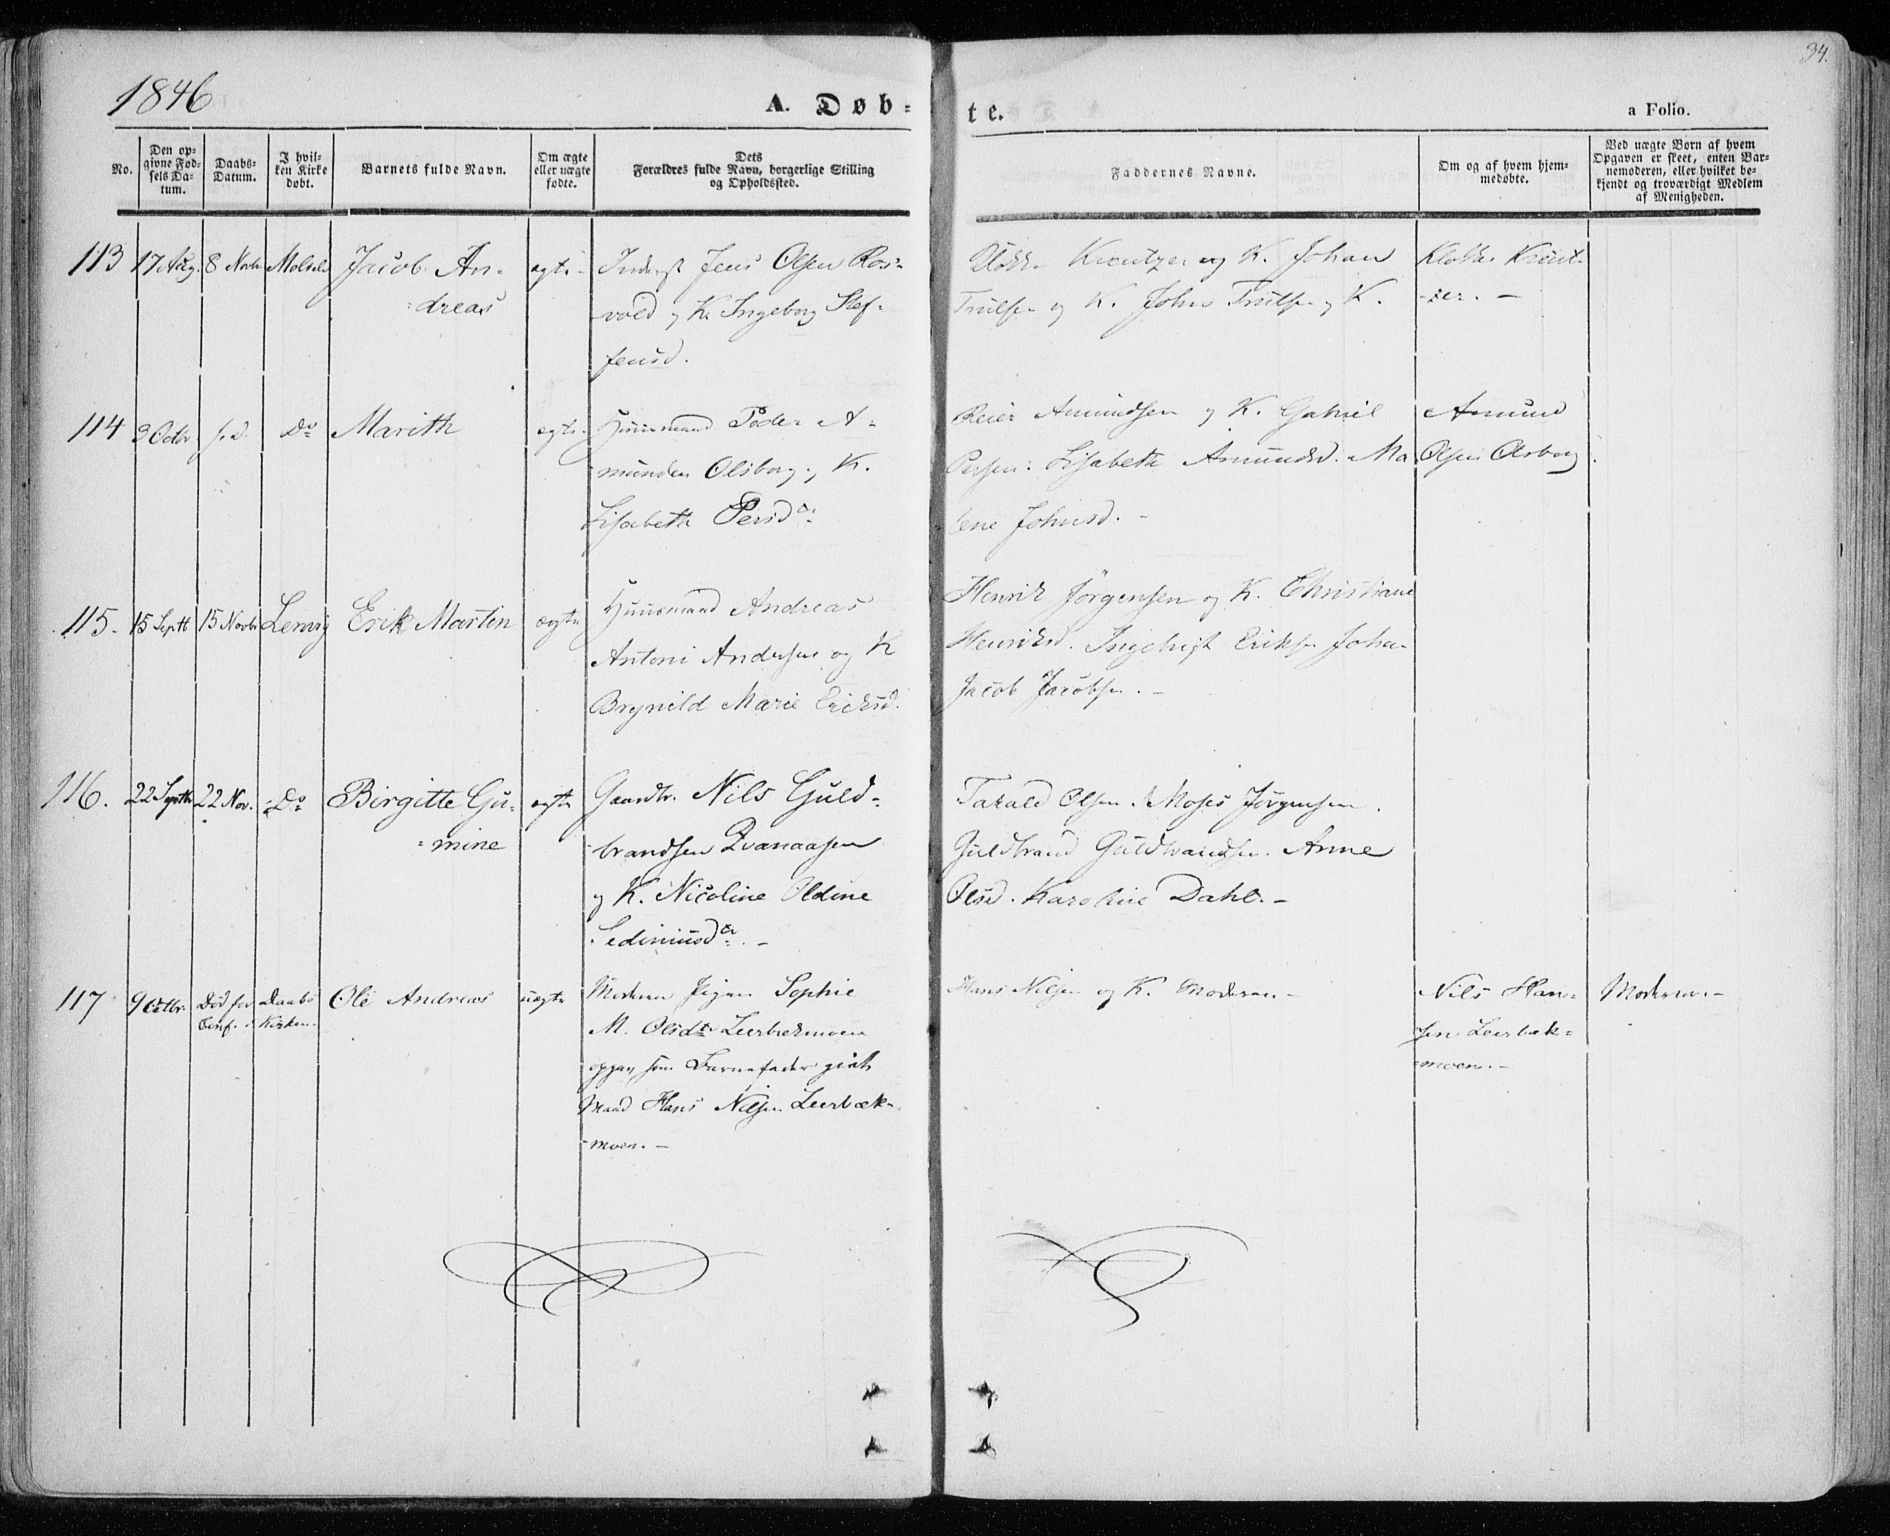 1846
A. Døb-
te.
34.
a Folio.
No.
Den op-
givne Fød-
sels Da-
tum.
Daabs-
Datum.
I hvil-
ken Kirke
døbt.
Barnets fulde Navn.
Om ægte
eller uægte
fødte.
Dets
Forældres fulde Navn, borgerlige Stilling
og Opholdssted.
Faddernes Navne.
Om og af hvem hjem-
medøbte.
Ved uægte Børn af hvem
Opgaven er skeet, enten Bar-
nemoderen, eller hvilket be-
kjendt og troværdigt Medlem
af Menigheden.
113 17 Aug. 8 Novbr Jacob An-
dreas
ægte
Inderst Jens Olsen Ros-
vold og K. Ingeborg Stef-
fensd.
Klokk. Kreutzer og K. Johan
Trulsen og K. John Trulsen og K.
Klokker Kreut-
zer. -
114 3 Octbr s. D. Do Marith
ægte
Huusmand Peder A-
munsen Olsborg og K.
Lisabeth Persd.
Reier Amundsen og K. Gabriel
Persen. Lisabeth Amundsd. Ma-
lene Johnsd. -
Amund
Olsen Olsborg.
115. 15 Septb 15 Novbr Lenvig Erik Martin
ægte
Huusmand Andreas
Antoni Andersen og K
Brynild Marie Eriksd.
Henrik Jörgensen og K. Christiane
Henriksd. Ingebrigt Eriksen Johan
Jacob Jacobsen. -
116. 22 Septbr 22 Nov. Do Birgitte Gu-
mine
ægte
Gaardbr. Nils Guld-
brandsen Qvanaasen
og K. Nicoline Oldine
Sediniusdr. -
Tarald Olsen. Moses Jörgensen.
Guldbrand Guldbrandsen. Anne
Olsd. Karoline Dahl. -
117 9 Octbr. Död för Daabs
Conf. i Kirken.
Ole Andreas
uægte
Moderen Pigen Sophie
M. Olsdtr Leerbækmoen
opgav som Barnefader givt
Mand Hans Nilsen Leerbæk-
moen. -
Hans Nilsen og K. Moderen -
Nils Han-
sen Leerbæk-
moen. -
Moderen. -